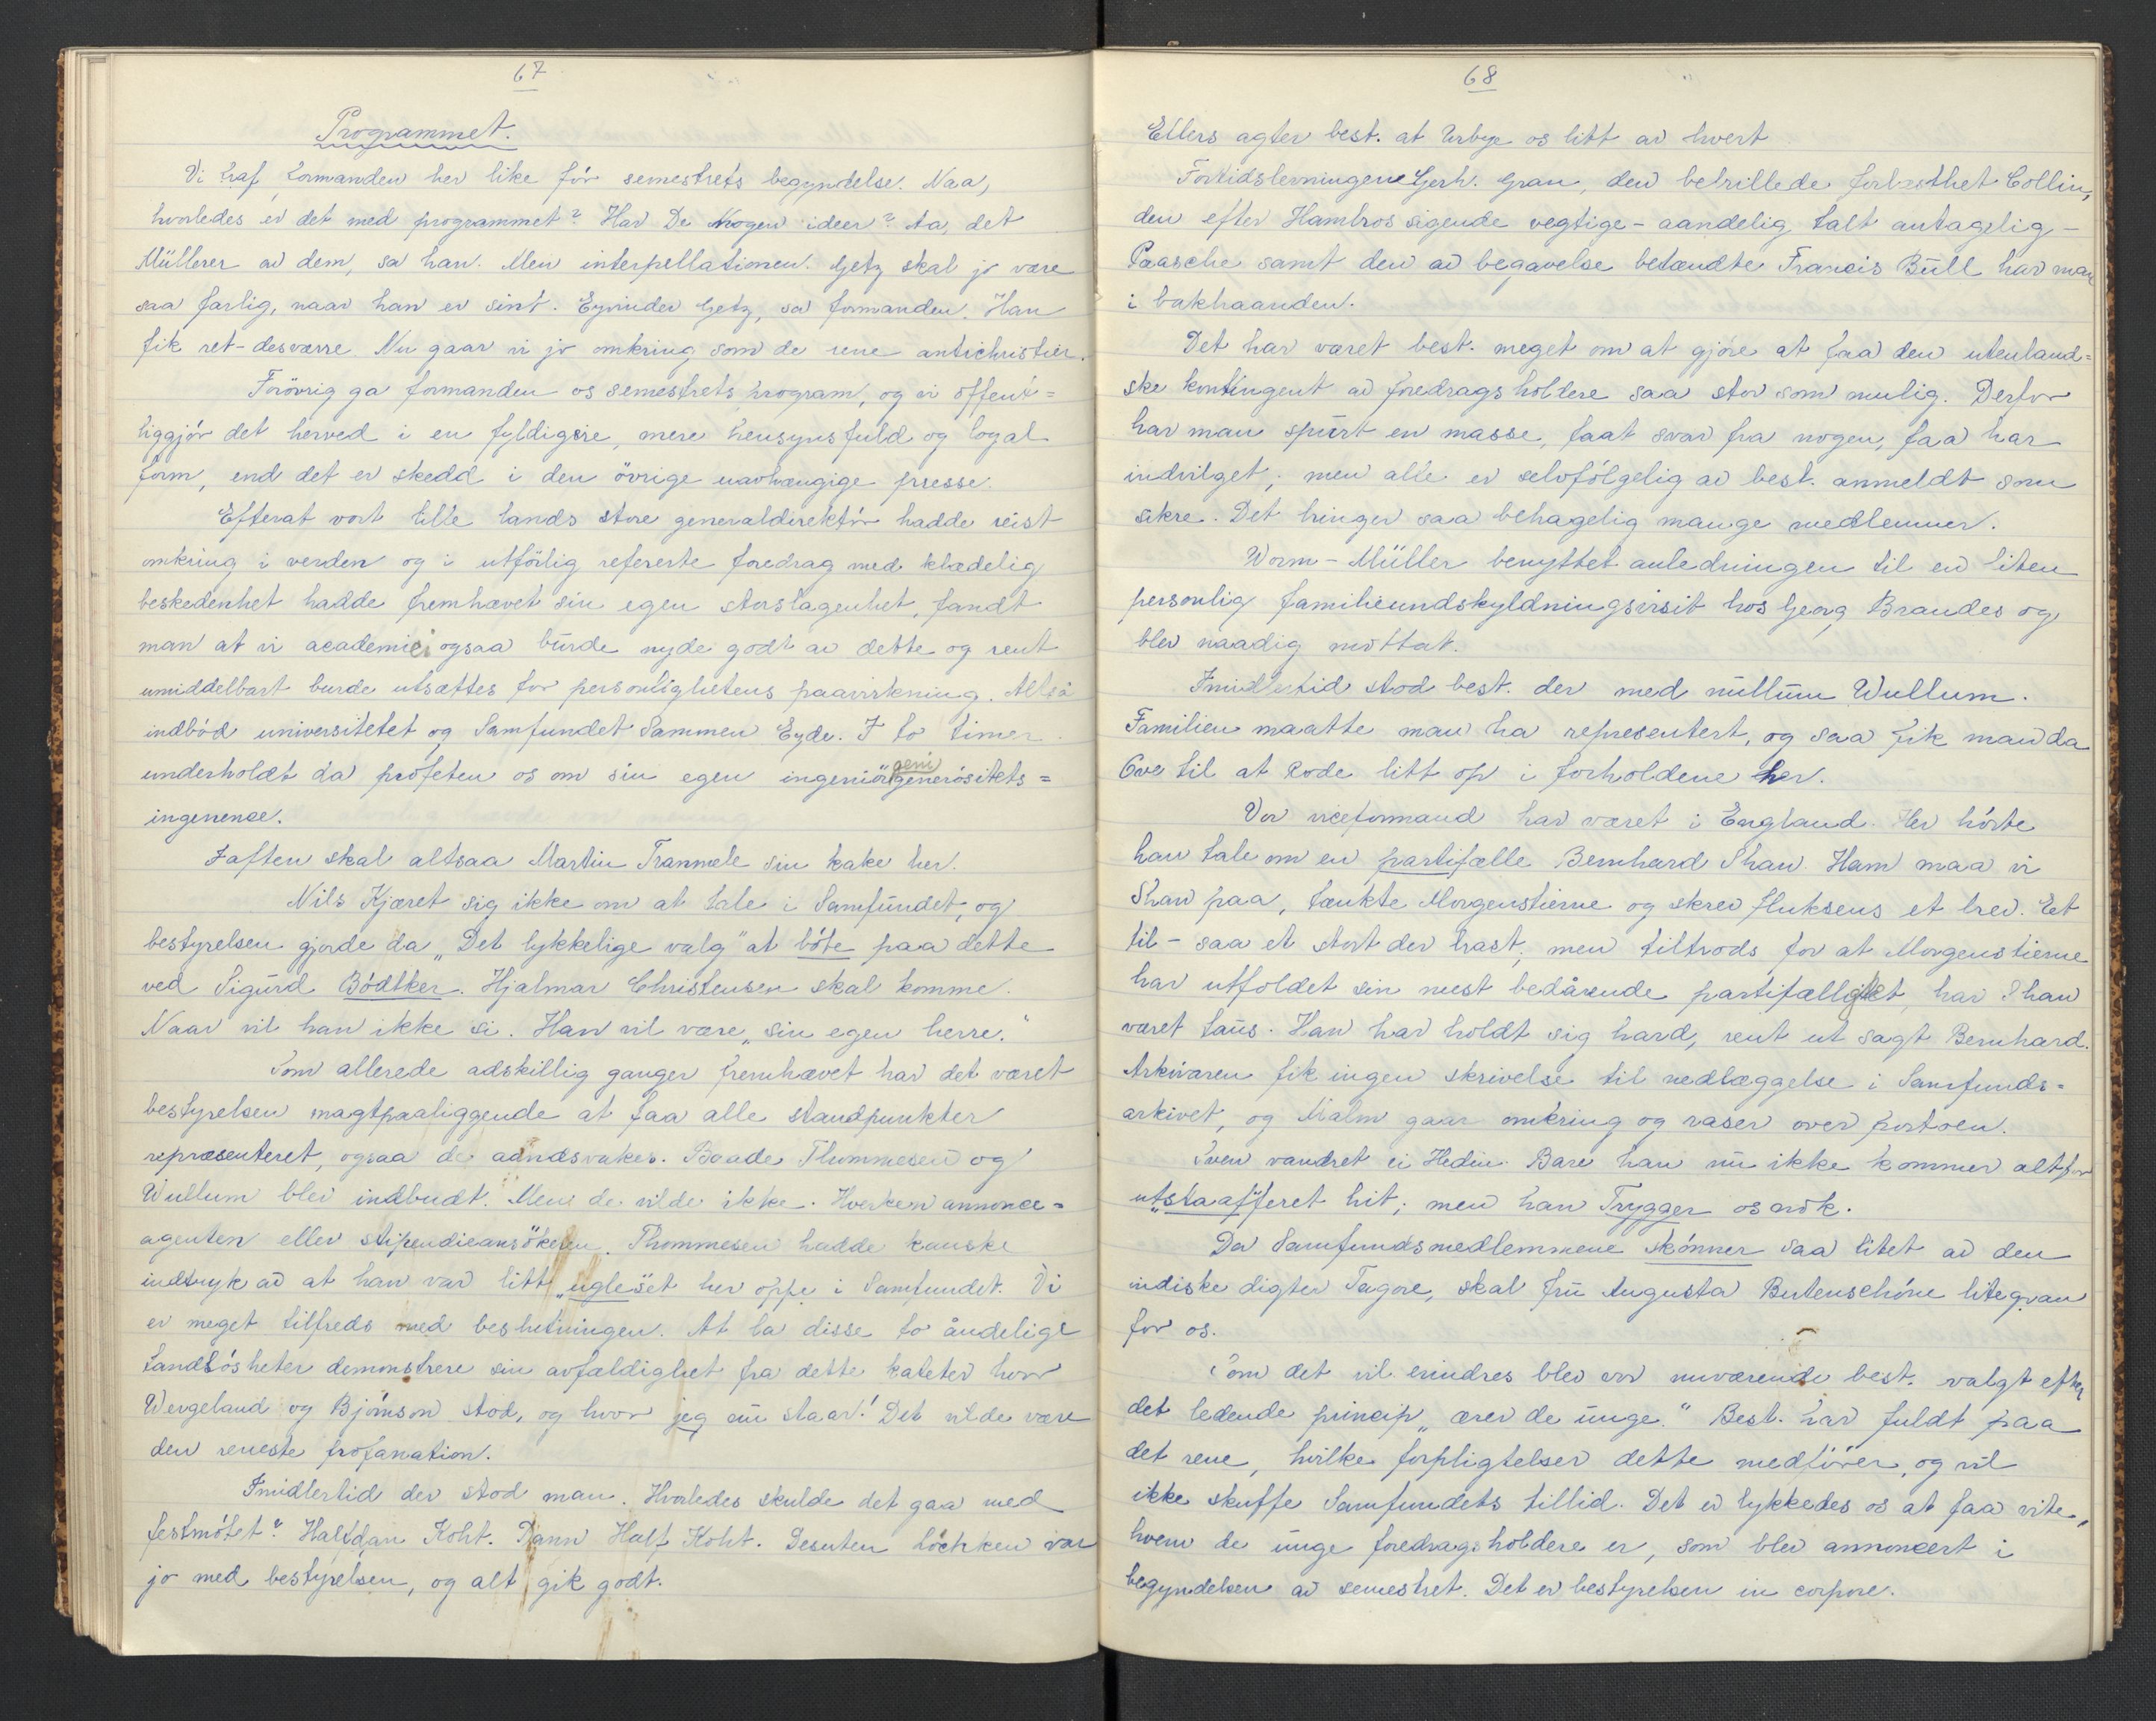 67
Programmet.
Vi traf formanden her like før semestrets begyndelse. Naa,
hvorledes er det med programmet? Har De nogen ideer? Aa, det
Müllerer av dem, sa han. Men interpellationen. Getz skal jo være
saa farlig, naar han er sint. Eyvinder Getz, sa formanden. Han
fik ret - desværre. Nu gaar vi jo omkring som de rene antichrister.
Forövrig ga formanden os semestrets program, og vi offent=
liggjør det herved i en fyldigere, mere hensynsfuld og loyal
form, end det er skedd i den övrige uavhængige presse.
Efterat vort lille lands store generaldirektör hadde reist
omkring i verden og i utförlig refererte foredrag med klædelig
beskedenhet hadde fremhævet sin egen storslagenhet, fandt
man at vi academici ogsaa burde nyde godt av dette og rent
umiddelbart burde utsættes for personlighetens paavirkning. Altså
indbød universitetet og Samfundet Sammen Eyde. I to timer
underholdt da profeten os om sin egen ingeniörgenigenerösitets=
ingenence.
Iaften skal altsaa Martin Tranmæle sin kake her.
Nils Kjæret sig ikke om at tale i Samfundet, og
bestyrelsen gjorde da „Det lykkelige valg" at bøte paa dette
ved Sigurd Bödtker. Hjalmar Christensen skal komme.
Naar vil han ikke si. Han vil være „sin egen herre."
Som allerede adskillig ganger fremhævet har det været
bestyrelsen magtpaaliggende at faa alle standpunkter
repræsenteret, ogsaa de aandsvakes. Baade Thommesen og
Wullum blev indbudt. Men de vilde ikke. Hverken annonce=
agenten eller stipendieansökeren. Thommesen hadde kanske
indtryk av at han var litt „ugleset her oppe i Samfundet. Vi
er meget tilfreds med beslutningen. At la disse to åndelige
tandløsheter demonstrere sin avfældighet fra dette kateter hvor
Wergeland og Björnson stod, og hvor jeg nu staar! Det vilde være
den reneste profanation.
Imidlertid der stod man. Hvorledes skulde det gaa med
festmötet? Halfdan Koht. Dann Half Koht. Desuten Löchken var
jo med bestyrelsen, og alt gik godt.
68
Ellers agter best. at Urbye os litt av hvert
Fortidslevningene Gerh. Gran, den bebrillede forlæsthet Collin,
den efter Hambros sigende vegtige - aandelig talt antagelig -
Paasche samt den av begavelse betændte Francis Bull har man
i bakhaanden.
Det har været best. meget om at gjøre at faa den utenland=
ske kontingent av foredragsholdere saa stor som mulig. Derfor
har man spurt en masse, faat svar fra nogen, faa har
indvilget; men alle er selvfølgelig av best. anmeldt som
sikre. Det bringer saa behagelig mange medlemmer.
Worm-Müller benyttet anledningen til en liten
personlig familieundskyldningsvisit hos Georg Brandes og
blev naadig mottat.
Imidlertid stod best. der med nullum Wullum.
Familien maatte man ha representert, og saa fik man da
Ove til at Rode litt op i forholdene her.
Vor viceformand har været i England. Her hörte
han tale om en partifælle Bernhard Shaw. Ham maa vi
Shaw paa, tænkte Morgenstierne og skrev fluksens et brev. Et
til - saa et stort der brast; men tiltrods for at Morgenstierne
har utfoldet sin mest bedårende partifællighet, har Shaw
været taus. Han har holdt sig hard, rent ut sagt Bernhard.
Arkivaren fik ingen skrivelse til nedlæggelse i Samfunds=
arkivet, og Malm gaar omkring og raser over portoen.
Sven vandret ei Hedin. Bare han nu ikke kommer altfor
ut„staafferet hit; men han Trygger os nok.
Da Samfundsmedlemmene skönner saa litet av den
indiske digter Tagore, skal fru Augusta Butenschöne litegran
for os.
Som det vil erindres blev vor nuværende best. valgt efter
det ledende princip „ærer de unge." Best. har fuldt paa
det rene, hvilke forpligtelser dette medfører, og vil
ikke skuffe Samfundets tillid. Det er lykkedes os at faa vite,
hvem de unge foredragsholdere er, som blev annoncert i
begyndelsen av semestret. Det er bestyrelsen in corpore.